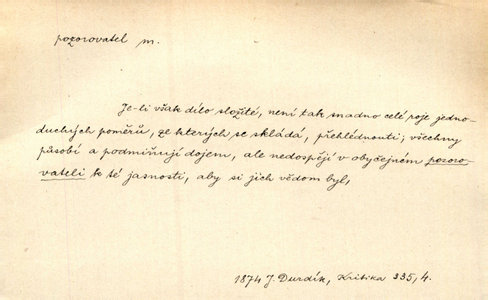 pozorovatel m.
Je-li však dílo složité, není tak snadno celé roje jedno-
duchých poměrů, ze kterých se skládá, přehlédnouti; všechny
působí a podmiňují dojem, ale nedospějí v obyčejném pozoro-
vateli k té jasnosti, aby si jich vědom byl,
1874 J. Durdík, Kritika 335, 4.